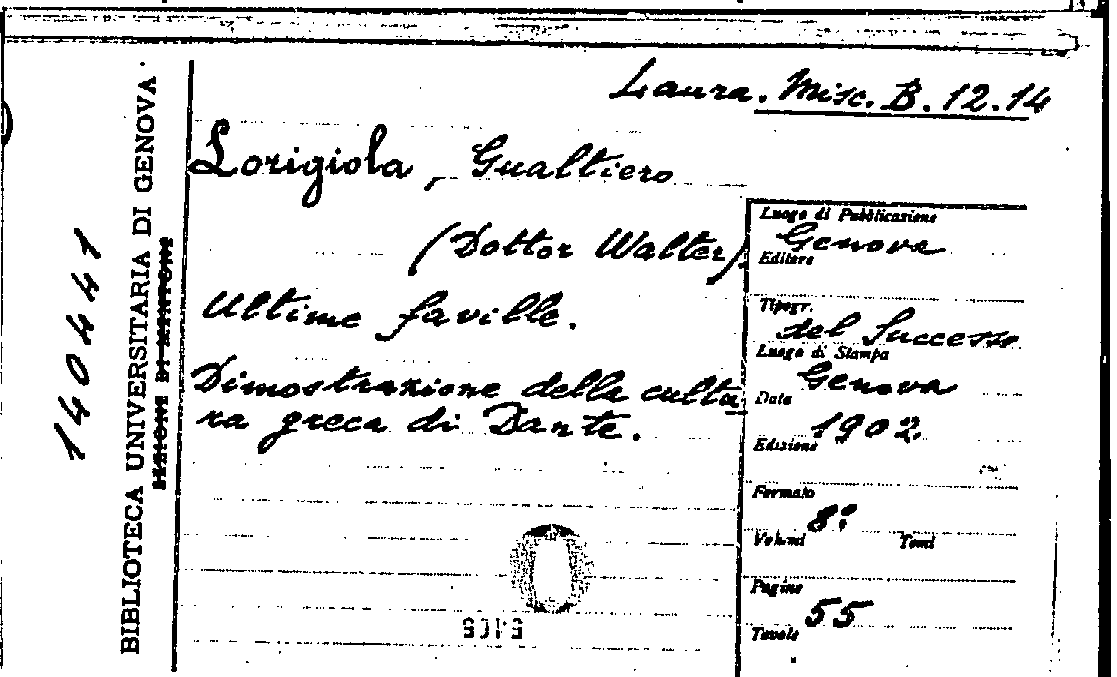 Laura. Misc. B. 12.14
Lorigiola, Gualtiero
(Dottor Walter).
Ultime faville.
Dimostrazione della cultu-
ra greca di Dante.
Luogo di Pubblicazione
Genova
Editore
Tipogr.
del Successo
Luogo di Stampa
Genova
Data
1902
Edizione
Formato
8°
Volumi Tomi
Pagine
55
Tavole
140441
BIBLIOTECA UNIVERSITARIA DI GENOVA